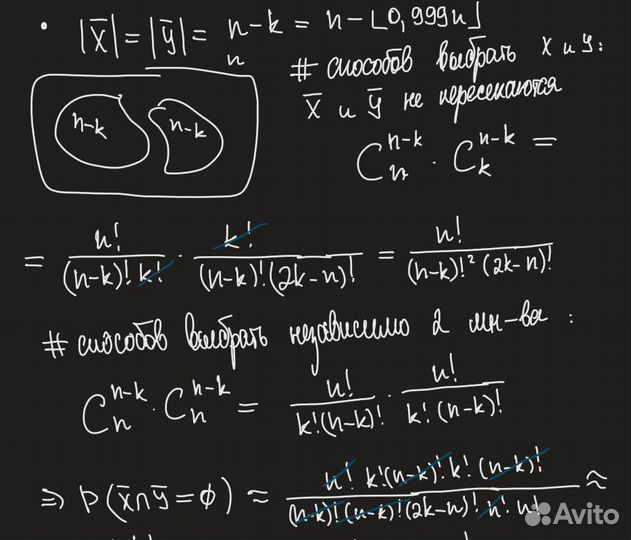 • |X̅| = |Y̅| = n-k = n - ⌊0,999n⌋
n
# способов выбрать X и Y:
X̅ и Y̅ не пересекаются
n-k n-k
C_n^{n-k} · C_k^{n-k} =
= n!/((n-k)! k!) · k!/((n-k)!(2k-n)!) = n!/((n-k)!² (2k-n)!)
# способов выбрать независимо 2 мн-ва:
C_n^{n-k} · C_n^{n-k} = n!/(k!(n-k)!) · n!/(k!(n-k)!)
⇒ P(X̅∩Y̅=∅) ≈ (n! k!(n-k)! k! (n-k)!)/((n-k)!(n-k)!(2k-n)! n! n!) ≈
Avito